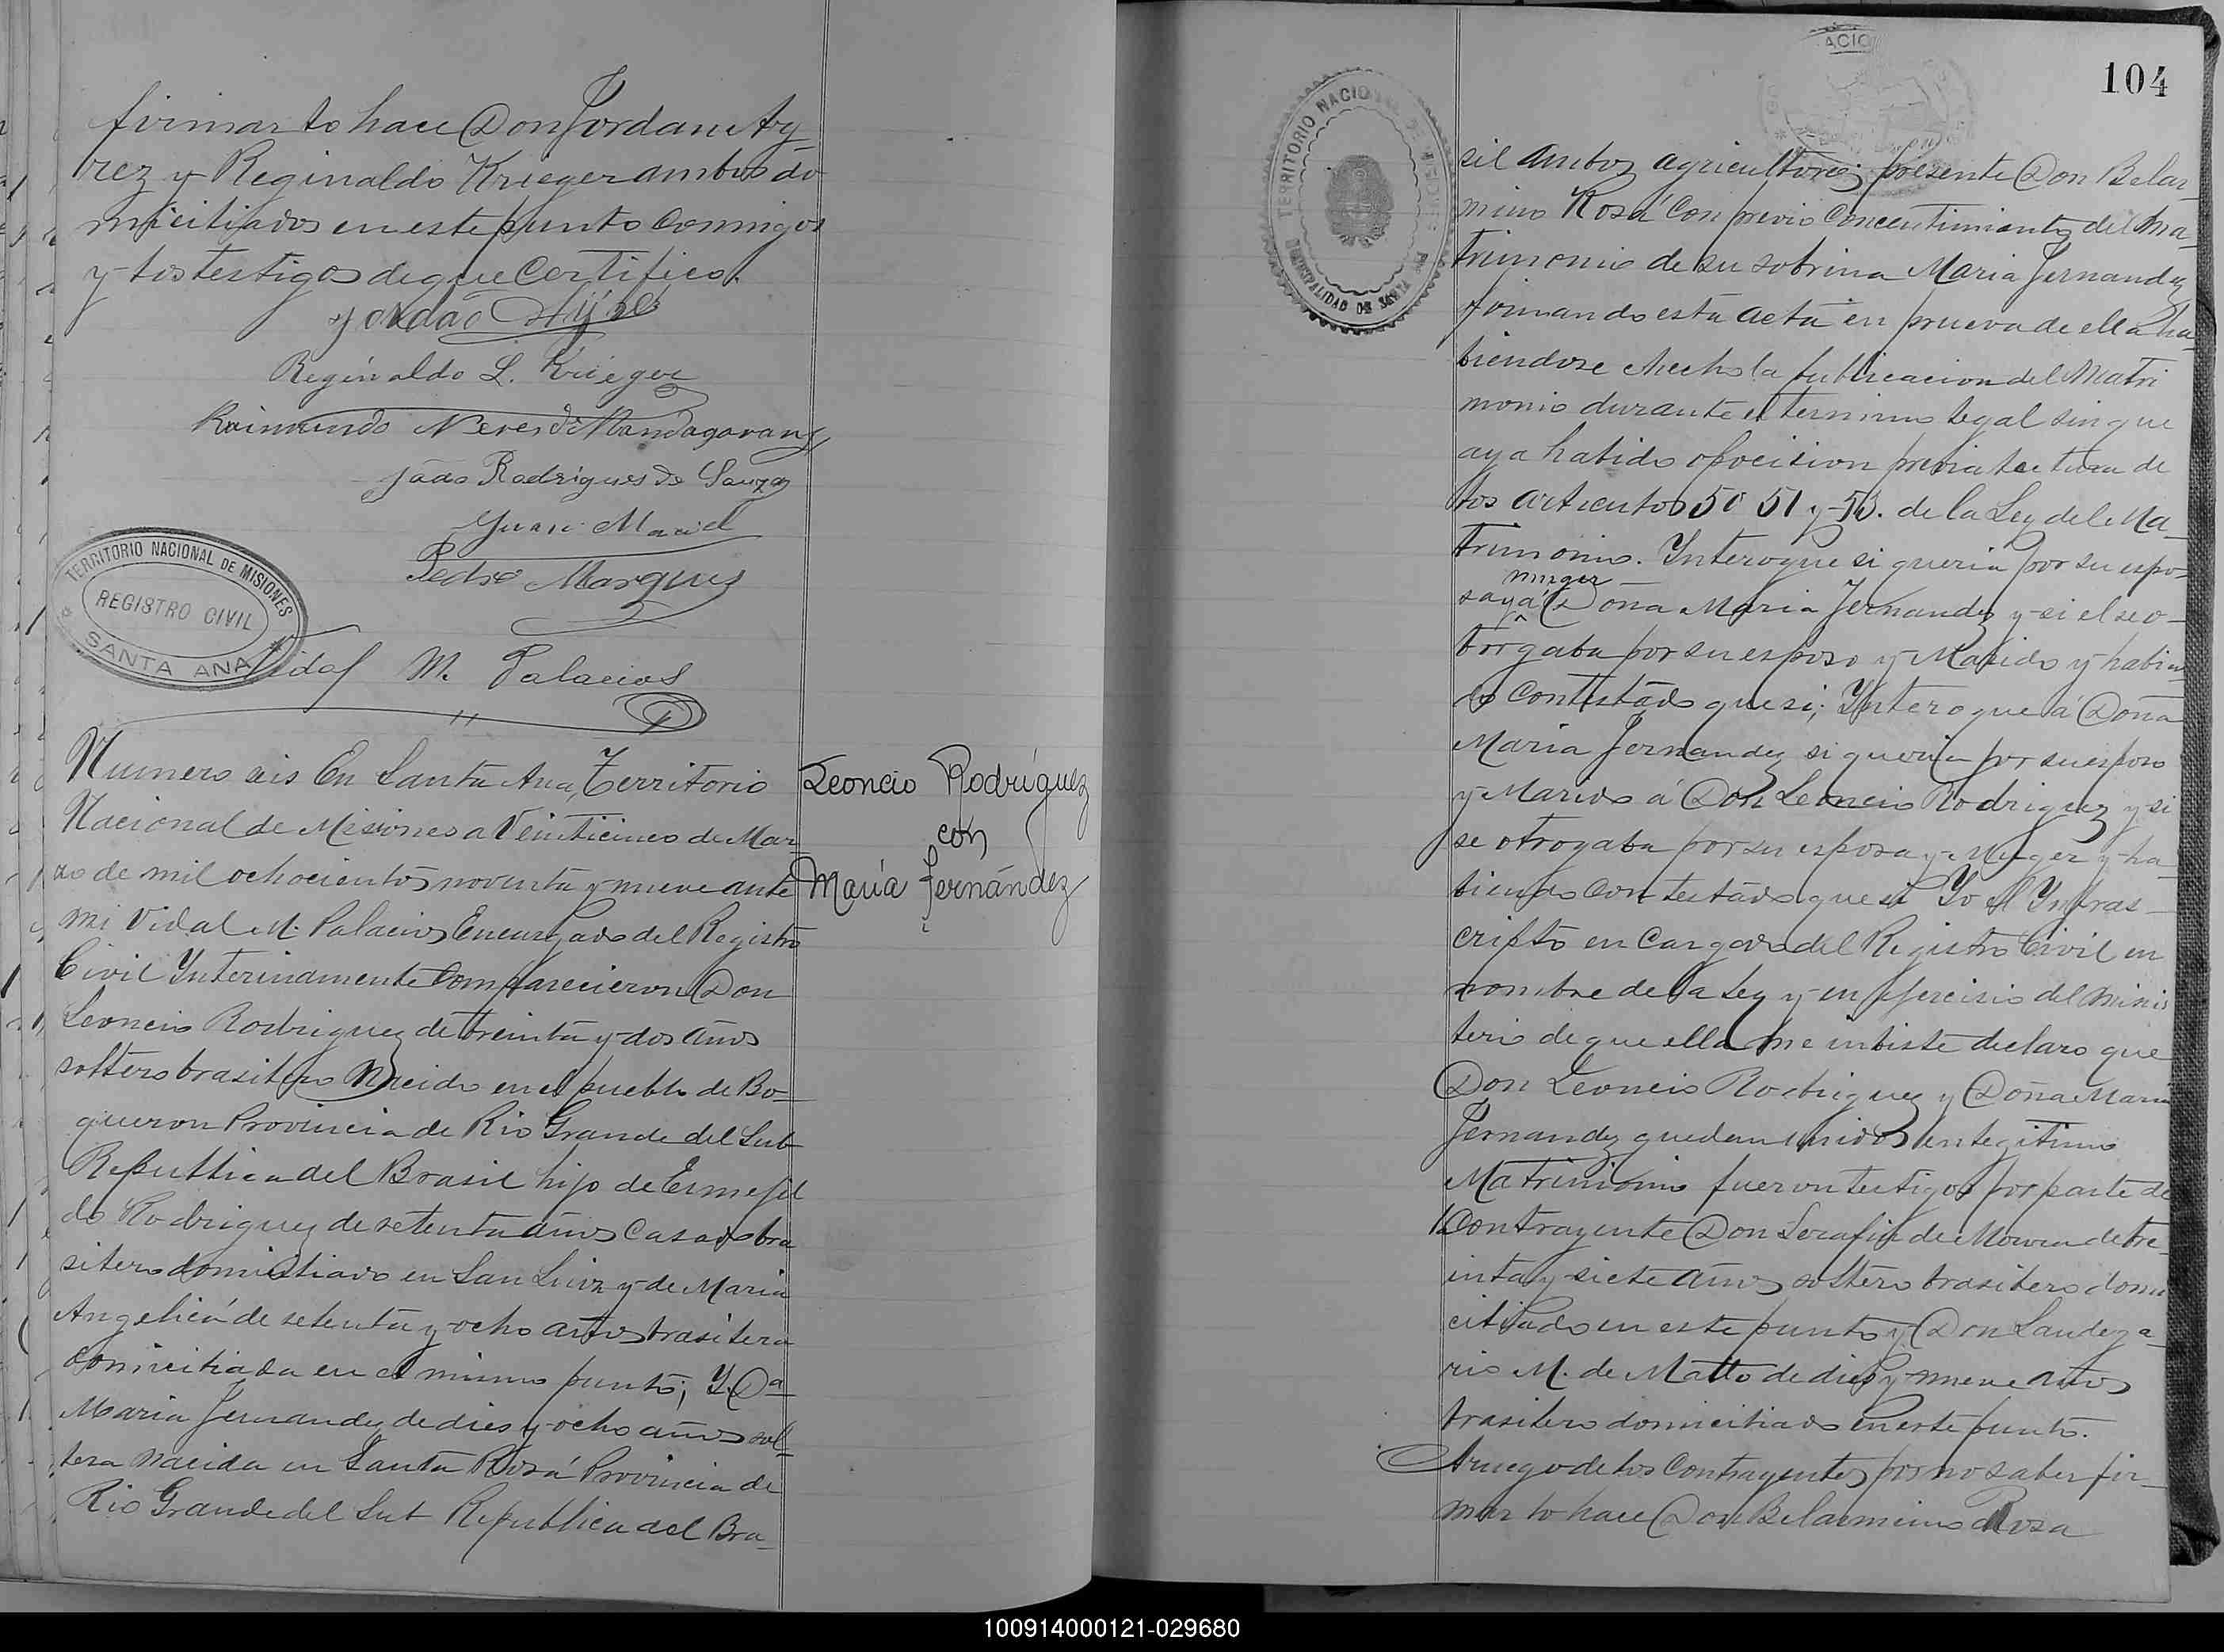 firmar lo hace Don Jordan Ay-
rez y Reginaldo Krieger ambos do
miciliados en este punto Conmigo
y los testigos de que Certifico.
Jordão Ayres
Reginaldo L. Krieger
Raimundo Neres de
João Rodrigues de Souza
Juan Maciel
Pedro Marques
TERRITORIO NACIONAL DE MISIONES
REGISTRO CIVIL
* SANTA ANA *
Vidal M. Palacios
Numero seis En Santa Ana, Territorio
Nacional de Misiones a Veinticinco de Mar-
zo de mil ochocientos noventa y nueve ante
mi Vidal M. Palacios Encargado del Registro
Civil Ynterinamente Comparecieron Don
Leoncio Rodriguez de treinta y dos años
soltero brasilero Nacido en el pueblo de Bo-
queron Provincia de Rio Grande del Sub
Republica del Brasil hijo de Ermejil
do Rodriguez de setenta años Casado bra
silero domiciliado en San Luiz y de Maria
Angelica de setenta y ocho años brasilera
domiciliada en el mismo punto; Y. Da
Maria Fernandez de dies y ocho años sol-
tera Nacida en Santa Rosa Provincia de
Rio Grande del Sub Republica del Bra-
Leoncio Rodríguez
con
María Fernández
104
ACIO
TERRITORIO NACIONAL DE MISIONES
MUNICIPALIDAD DE SANTA
sil ambos agricultores presente Don Belar-
mino Rosa Con previo Concentimiento del Ma-
trimonio de su sobrina Maria Fernandez
firmando esta acta en prueva de ella ha-
biendose hecho la publicacion del Matri
monio durante el termino legal sin que
aya habido opocicion previa lectura de
los articulos 50 51 y 53. de la Ley del Ma-
trimonio. Ynteroque si queria por su espo-
muger
sa y á Doña Maria Fernandez y si el se o-
torgaba por su esposo y Marido y habien
do Contestado que si; Ynteroque á Doña
Maria Fernandez si queria por su esposo
y Marido á Don Leoncio Rodriguez y si
se otrogaba por su esposa y Muger y ha-
biendo Contestado que si Yo el Ynfras-
cripto en Cargado del Registro Civil en
nombre de la Ley y en ejercisio del minis
terio de que ella me inbiste declaro que
Don Leoncio Rodriguez y Doña Maria
Fernandez quedan unidos en legitimo
Matrimonio fueron testigos por parte del
Contrayente Don Serafin de Moura de tre-
inta y siete años soltero brasilero domi
ciliado en este punto y Don Landega-
rio M. de Matto de dies y nueve años
brasilero domiciliado en este punto.
Aruego de los Contrayentes por no saber fir-
mar lo hace Don Belarmino Rosa
100914000121-029680